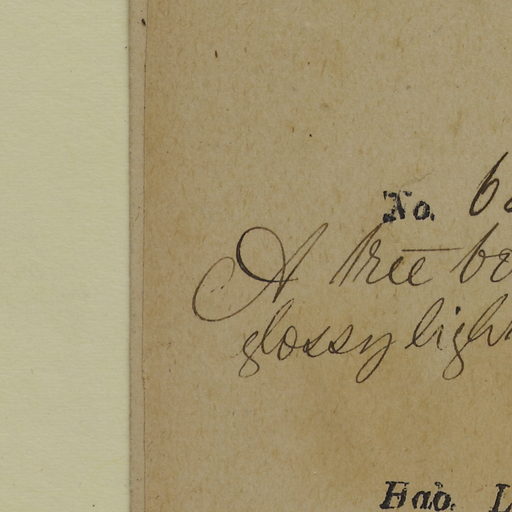 No. 6
A tree be
glossy light
Hab. L